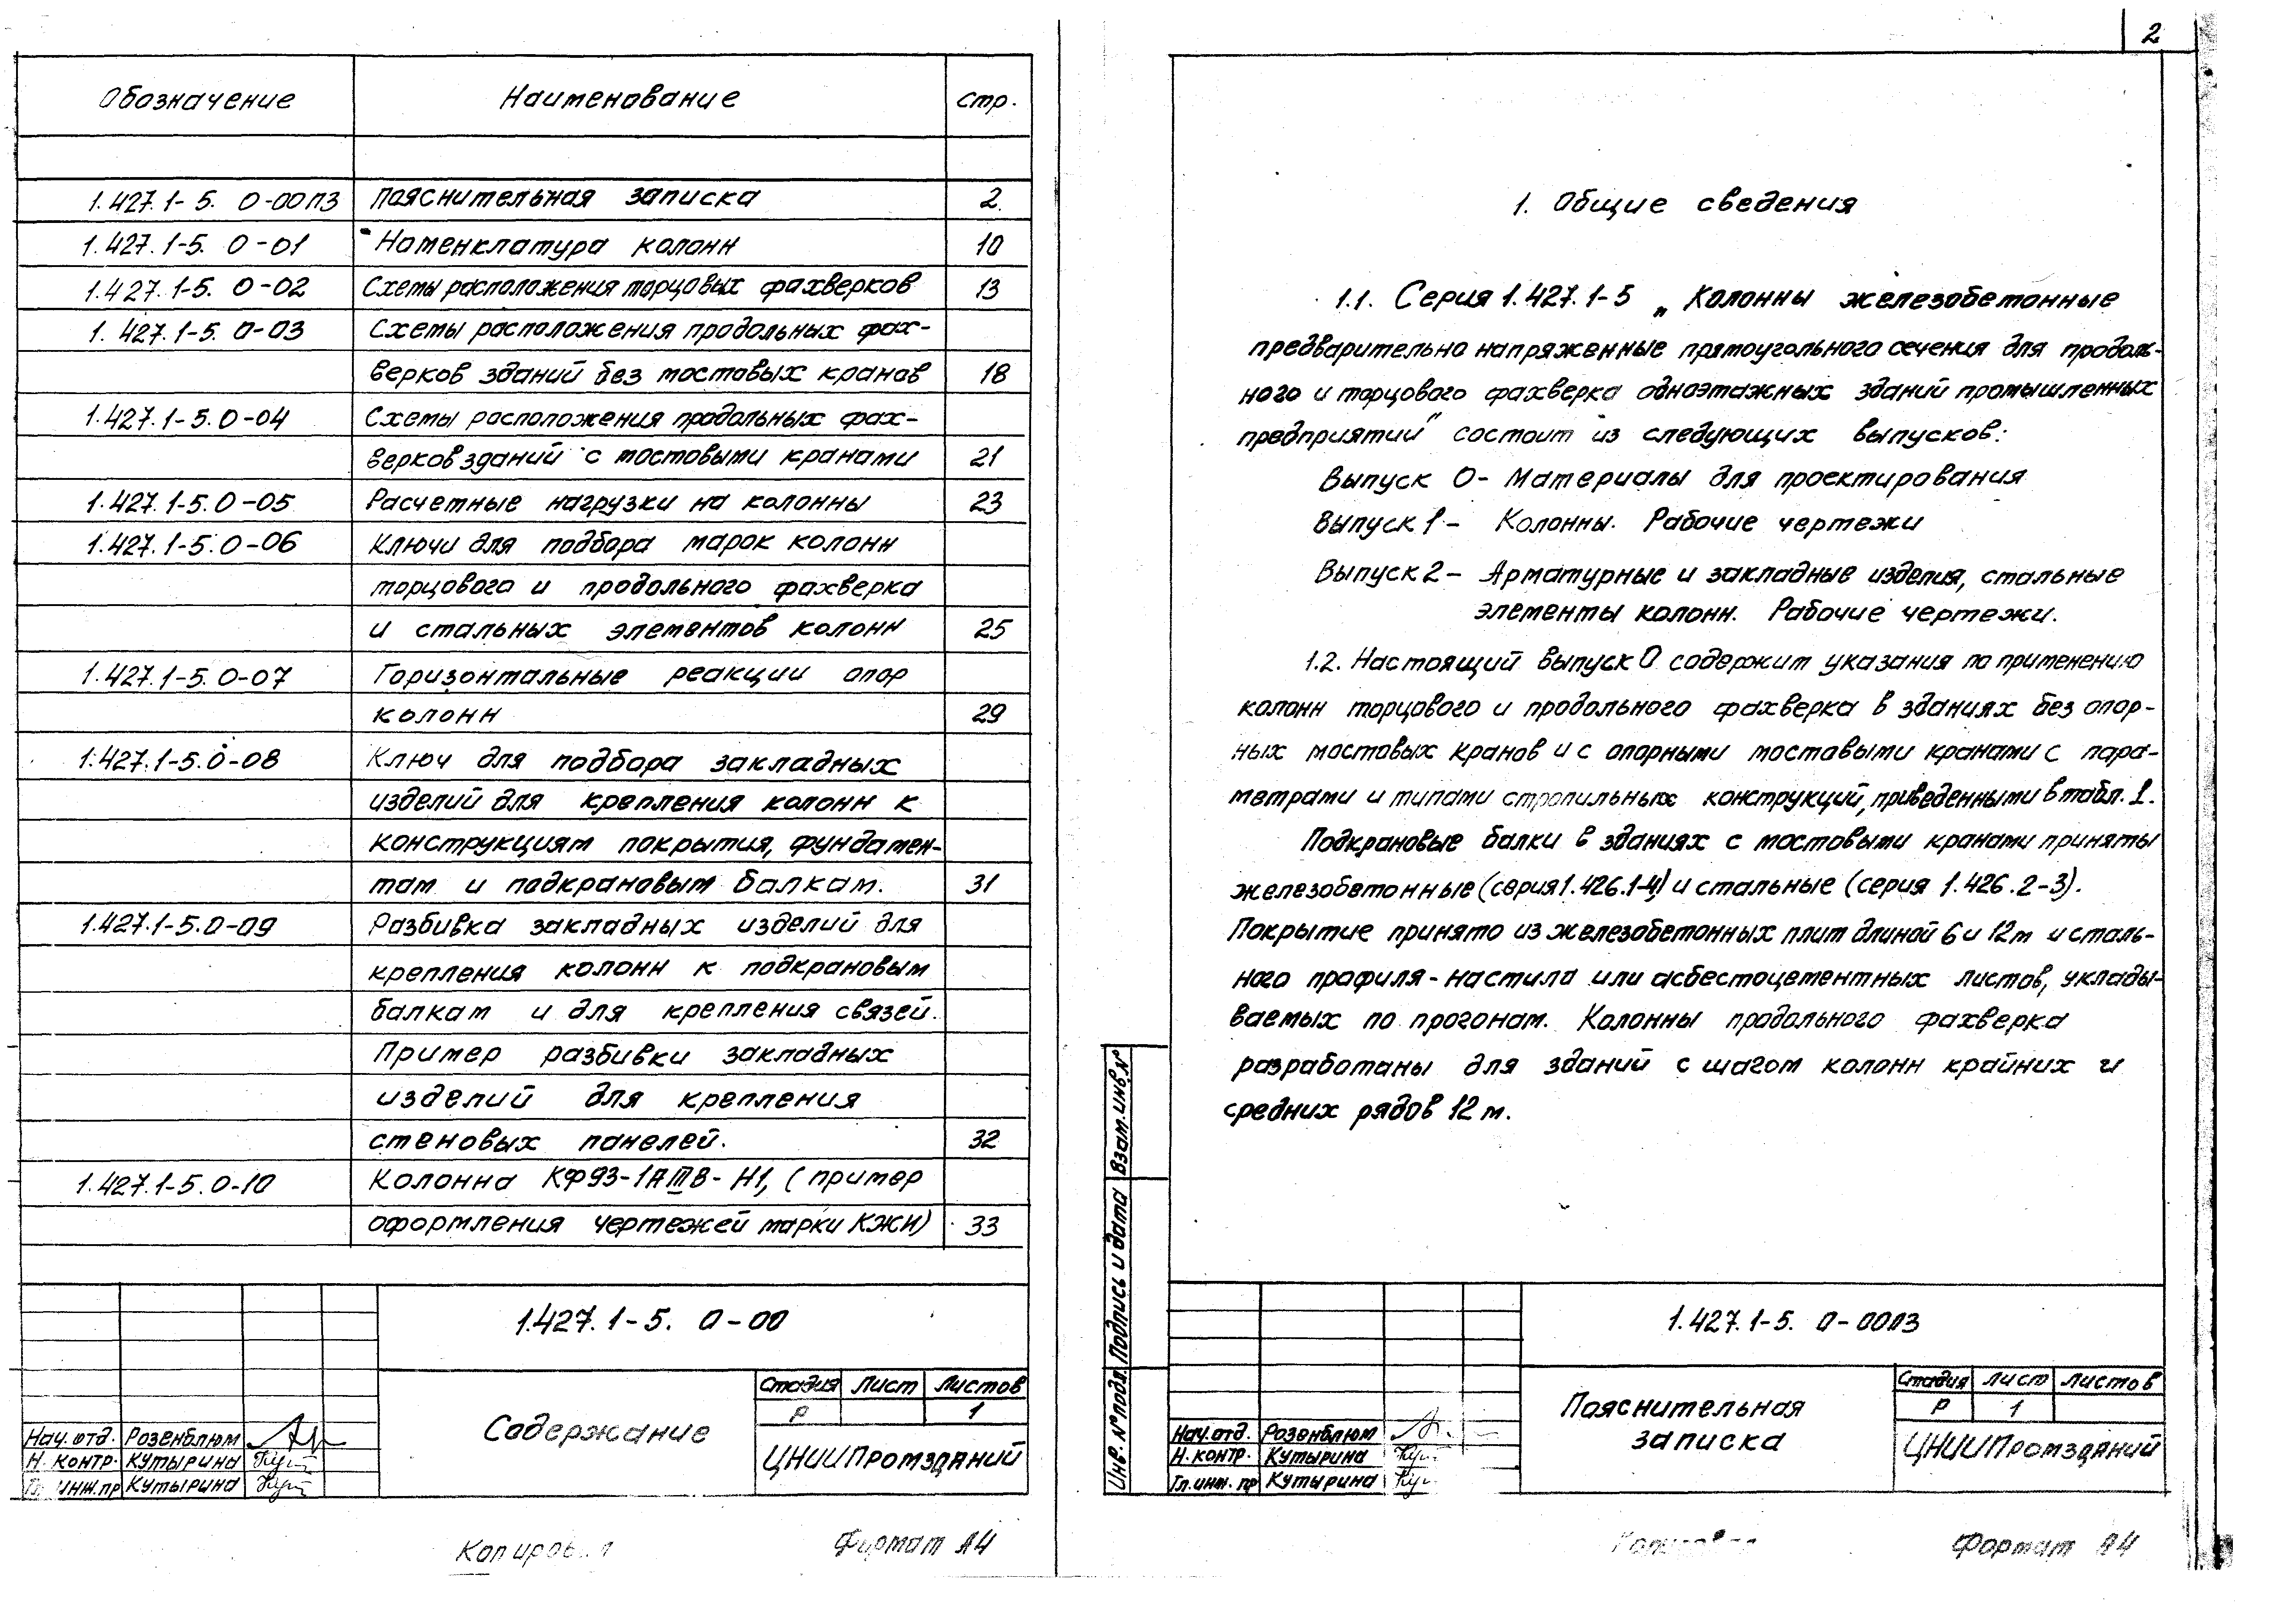 Обозначение Наименование стр.
1.427.1-5. 0-00ПЗ Пояснительная записка 2
1.427.1-5. 0-01 Номенклатура колонн 10
1.427.1-5. 0-02 Схемы расположения торцовых фахверков 13
1.427.1-5. 0-03 Схемы расположения продольных фах-
верков зданий без мостовых кранов 18
1.427.1-5.0-04 Схемы расположения продольных фах-
верков зданий с мостовыми кранами 21
1.427.1-5.0-05 Расчетные нагрузки на колонны 23
1.427.1-5.0-06 Ключи для подбора марок колонн
торцового и продольного фахверка
и стальных элементов колонн 25
1.427.1-5.0-07 Горизонтальные реакции опор
колонн 29
1.427.1-5.0-08 Ключ для подбора закладных
изделий для крепления колонн к
конструкциям покрытия, фундамен-
там и подкрановым балкам. 31
1.427.1-5.0-09 Разбивка закладных изделий для
крепления колонн к подкрановым
балкам и для крепления связей.
Пример разбивки закладных
изделий для крепления
стеновых панелей. 32
1.427.1-5.0-10 Колонна КФ93-1АIIIВ-Н1, (пример
оформления чертежей марки КЖИ) 33
1.427.1-5. 0-00
Содержание
Стадия Лист Листов
Р 1
ЦНИИПромзданий
Нач.отд. Розенблюм
Н. контр. Кутырина
Гл. инж.пр Кутырина
Копировал Формат А4
2
1. Общие сведения
1.1. Серия 1.427.1-5 „Колонны железобетонные
предварительно напряженные прямоугольного сечения для продоль-
ного и торцового фахверка одноэтажных зданий промышленных
предприятий" состоит из следующих выпусков:
Выпуск 0- Материалы для проектирования
Выпуск 1- Колонны. Рабочие чертежи
Выпуск 2- Арматурные и закладные изделия, стальные
элементы колонн. Рабочие чертежи.
1.2. Настоящий выпуск 0 содержит указания по применению
колонн торцового и продольного фахверка в зданиях без опор-
ных мостовых кранов и с опорными мостовыми кранами с пара-
метрами и типами стропильных конструкций, приведенными в табл. 1.
Подкрановые балки в зданиях с мостовыми кранами приняты
железобетонные (серия 1.426.1-4) и стальные (серия 1.426.2-3).
Покрытие принято из железобетонных плит длиной 6 и 12м и сталь-
ного профиля-настила или асбестоцементных листов, уклады-
ваемых по прогонам. Колонны продольного фахверка
разработаны для зданий с шагом колонн крайних и
средних рядов 12м.
Взам.инв.№
Подпись и дата
Инв. № подл.
1.427.1-5. 0-00ПЗ
Пояснительная
записка
Стадия Лист Листов
Р 1
ЦНИИПромзданий
Нач.отд. Розенблюм
Н.контр. Кутырина
Гл.инж.пр Кутырина
Копировал Формат А4